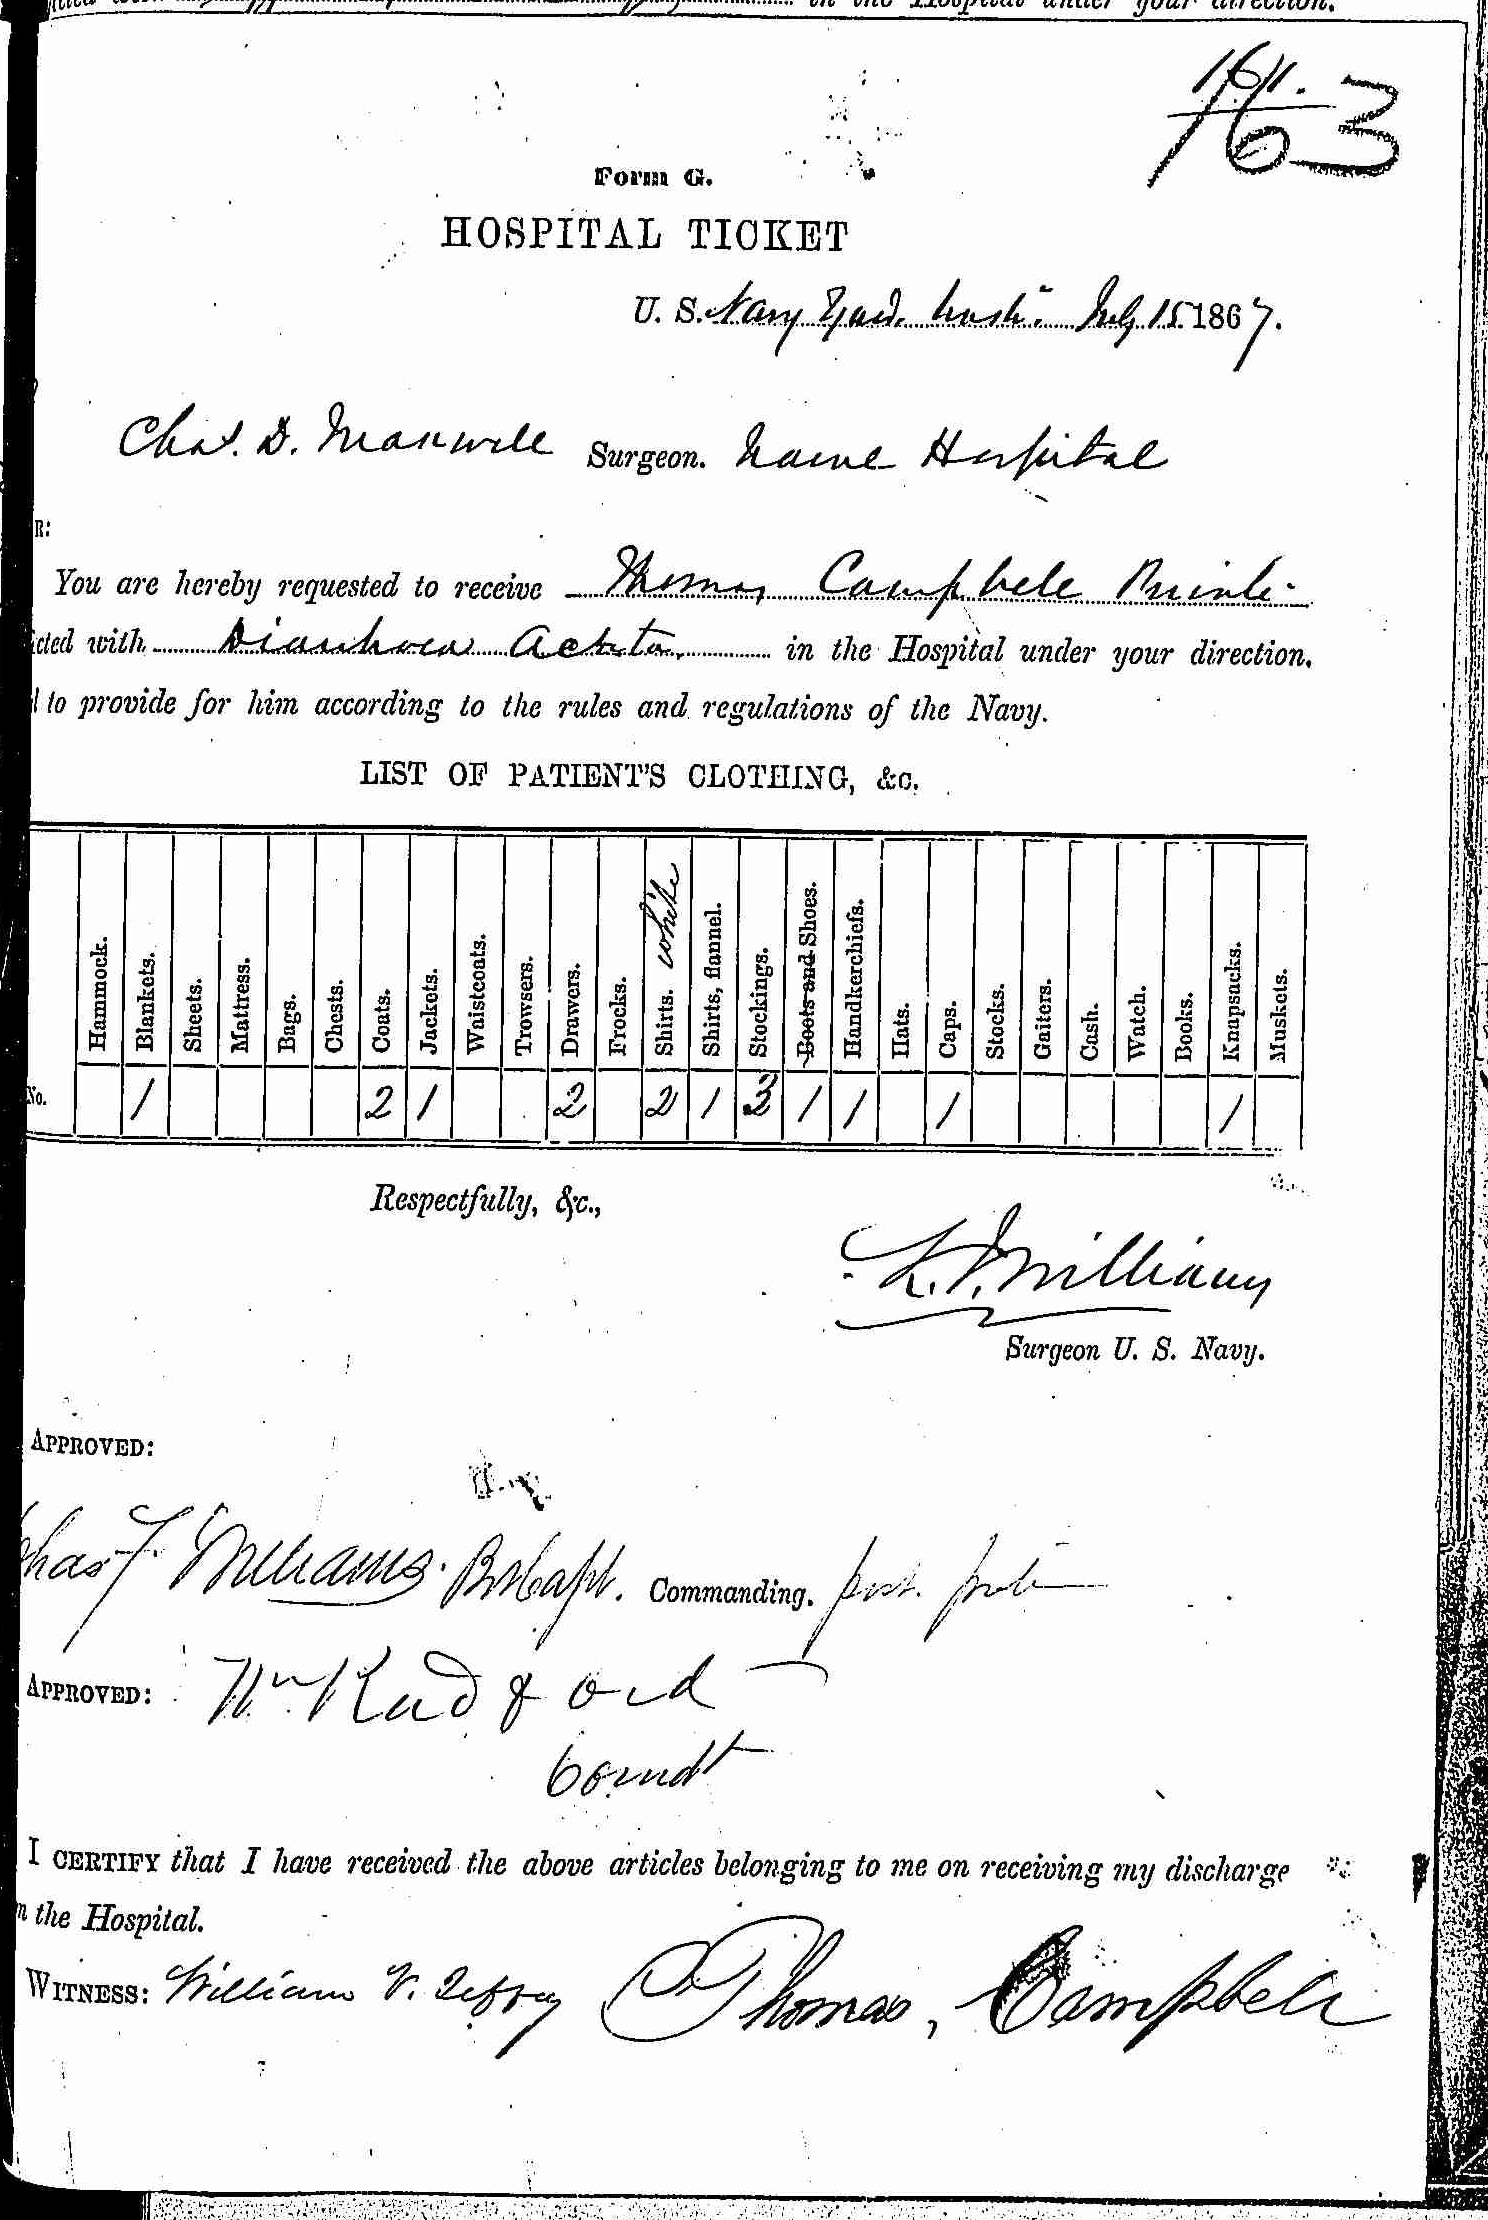 in the Hospital under your direction.
1611.
163
Form G.
HOSPITAL TICKET
U. S. Navy Yard, Wash. July 15 1867.
Chas. D. Maxwell Surgeon. Naval Hospital
R:
You are hereby requested to receive Thomas Campbell Private
icted with Diarrhoea Acuta. in the Hospital under your direction,
l to provide for him according to the rules and regulations of the Navy.
LIST OF PATIENT'S CLOTHING, &c.
Hammock. Blankets. Sheets. Mattress. Bags. Chests. Coats. Jackets. Waistcoats. Trowsers. Drawers. Frocks. Shirts. white Shirts, flannel. Stockings. Boots and Shoes. Handkerchiefs. Hats. Caps. Stocks. Gaiters. Cash. Watch. Books. Knapsacks. Muskets.
No. 1 2 1 2 2 1 3 1 1 1 1
Respectfully, &c.,
Williams
Surgeon U. S. Navy.
APPROVED:
Chas F. Williams. Bvt Capt. Commanding.
APPROVED: Wm Radford
Comdt
I CERTIFY that I have received the above articles belonging to me on receiving my discharge
m the Hospital.
WITNESS: William V. Thomas, Campbell